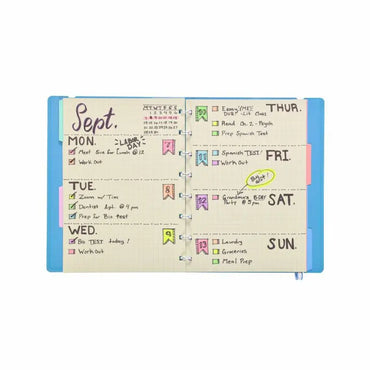 Sept.
M T W T F S S
MON.
LABOR DAY
7
Meet Sis for Lunch @ 12
Work Out
TUE.
8
Zoom w/ Tim
Dentist Apt. @ 4 pm
Prep for Bio test
WED.
9
Bio TEST today!
Work Out
THUR.
10
Essay Due! - Lit Class
Read Ch. 2 - Psych
Prep Spanish Test
FRI.
11
Spanish TEST!
Work Out
SAT.
12
Grandma's BDAY
Party @ 5 pm
SUN.
13
Laundry
Groceries
Meal Prep